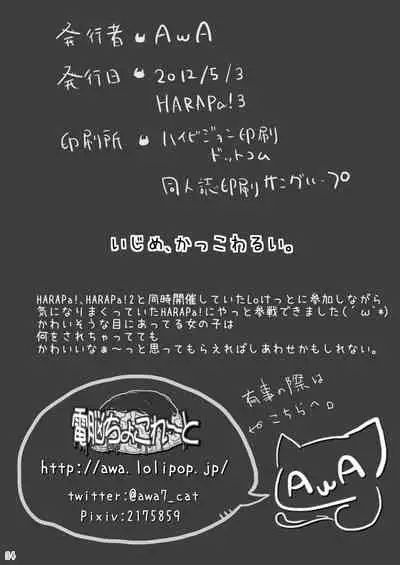 発行者 AwA
発行日 2012/5/3
HARAPa!3
印刷所 ハイビジョン印刷
ドットコム
同人誌印刷サングループ
いじめ、かっこわるい。
HARAPa!、HARAPa!2と同時開催していたLoけっとに参加しながら
気になりまくっていたHARAPa!にやっと参戦できました(´ω`*)
かわいそうな目にあってる女の子は
何をされちゃってても
かわいいなぁ〜っと思ってもらえればしあわせかもしれない。
有事の際は
こちらへ。
電脳ちょこれーと
http://awa.lolipop.jp/
twitter:@awa7_cat
Pixiv:2175859
AwA